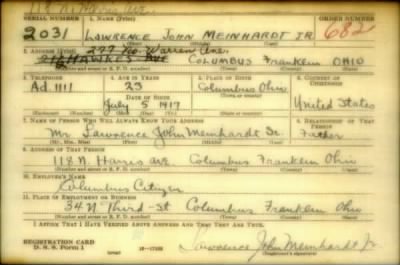 118 N. Harris Ave.
SERIAL NUMBER 1. NAME (Print) ORDER NUMBER
2031 LAWRENCE JOHN MEINHARDT JR 682
(First) (Middle) (Last)
2. ADDRESS (Print) 277 No. Warren Ave.
216 HAWKES AVE COLUMBUS Franklin OHIO
(Number and street or R. F. D. number) (Town) (County) (State)
3. TELEPHONE 4. AGE IN YEARS 5. PLACE OF BIRTH 6. COUNTRY OF CITIZENSHIP
Ad. 1111 23 Columbus
DATE OF BIRTH (Town or county)
July 5 1917 Ohio United States
(Mo.) (Day) (Yr.) (State or country)
7. NAME OF PERSON WHO WILL ALWAYS KNOW YOUR ADDRESS 8. RELATIONSHIP OF THAT PERSON
Mr. Lawrence John Meinhardt Sr. Father
(Mr., Mrs., Miss) (First) (Middle) (Last)
9. ADDRESS OF THAT PERSON
118 N. Harris ave Columbus Franklin Ohio
(Number and street or R. F. D. number) (Town) (County) (State)
10. EMPLOYER'S NAME
Columbus Citizen
11. PLACE OF EMPLOYMENT OR BUSINESS
34 N Third-St Columbus Franklin Ohio
(Number and street or R. F. D. number) (Town) (County) (State)
I AFFIRM THAT I HAVE VERIFIED ABOVE ANSWERS AND THAT THEY ARE TRUE.
REGISTRATION CARD
D. S. S. Form 1 Lawrence John Meinhardt Jr
(Registrant's signature)